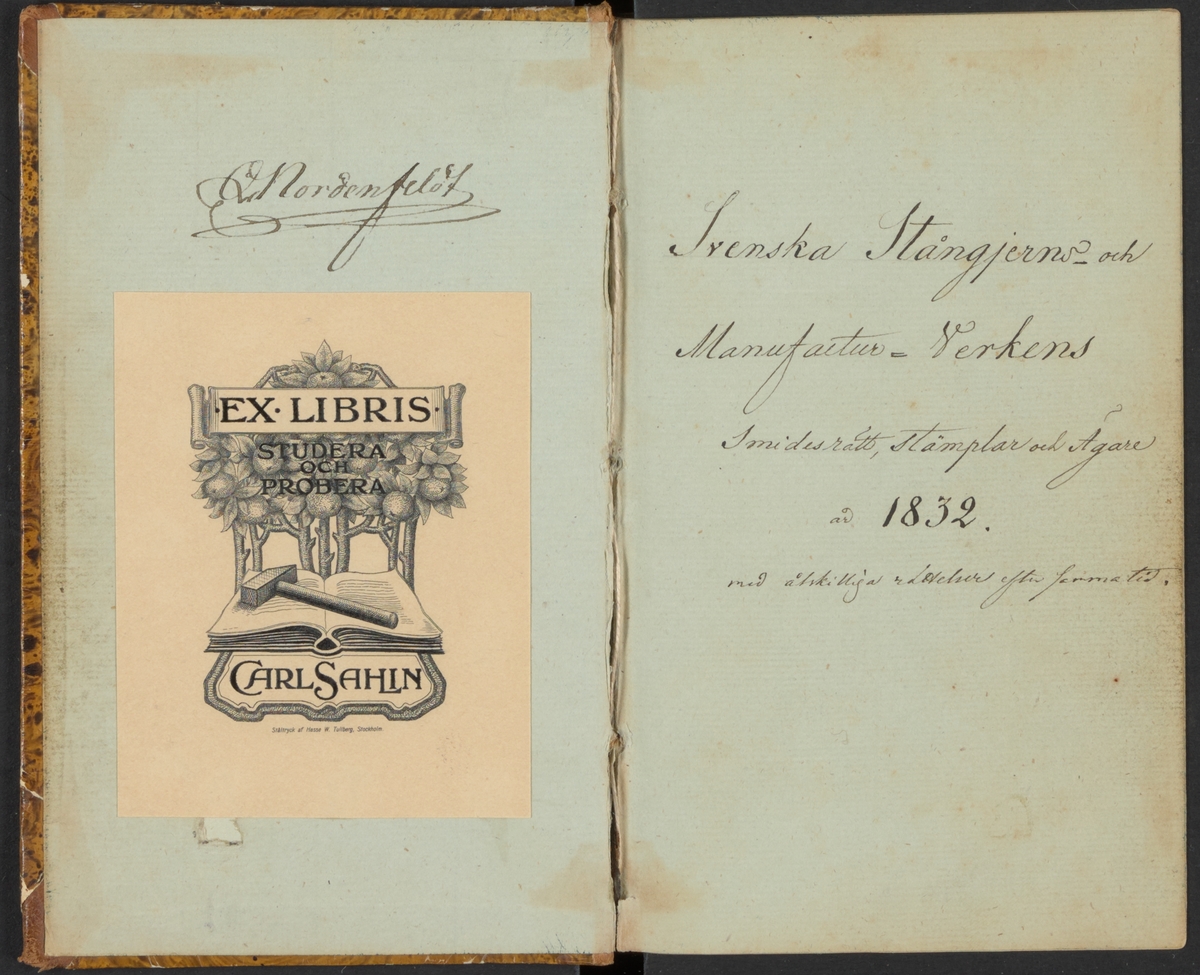 Nordenfeldt
EX · LIBRIS
STUDERA
OCH
PROBERA
CARL SAHLIN
Ståltryck af Hasse W. Tullberg, Stockholm.
Svenska Stångjerns- och
Manufactur = Verkens
Smidesrätt, Stämplar och Ägare
år 1832.
med åtskilliga rättelser efter samma tid.